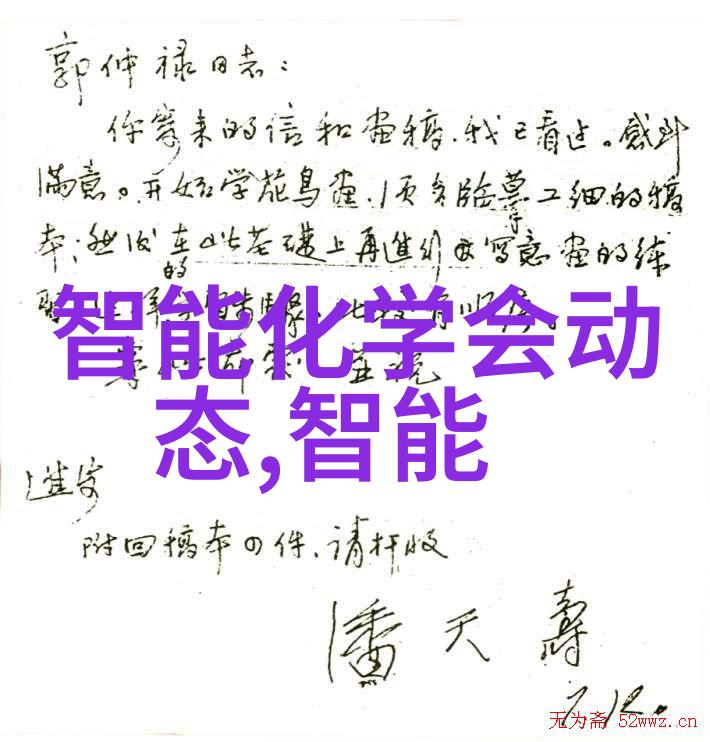 郭仲禄同志：
你寄来的信和画稿，我已看过。感到
满意。开始学花鸟画，须多临摹工细的稿
本；然后在此基础上再进行写意画的练
的
智能化学会动
态,智能
进步
附回稿本四件，请查收
潘天寿
7.12.
无为斋 52wwz.cn